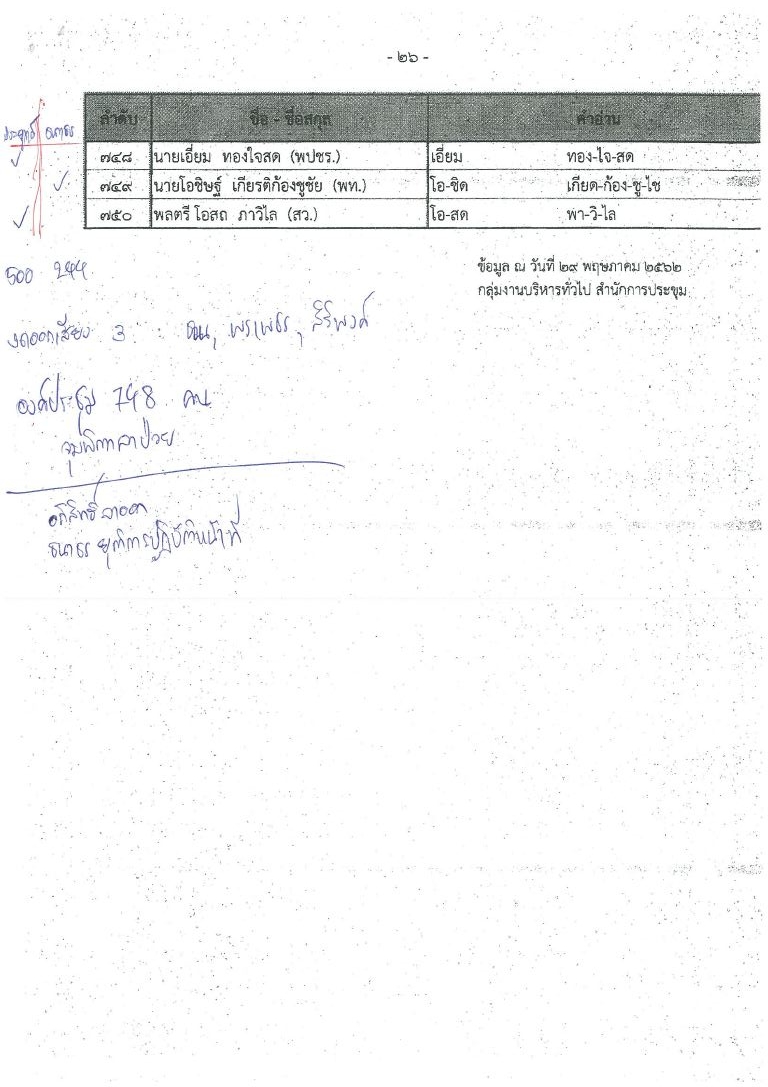 - ๒๖ -
ลำดับ ชื่อ - ชื่อสกุล คำอ่าน
ประยุทธ์ ธนาธร
๗๔๘ นายเอี่ยม ทองใจสด (พปชร.) เอี่ยม ทอง-ไจ-สด
๗๔๙ นายโอชิษฐ์ เกียรติก้องชูชัย (พท.) โอ-ชิด เกียด-ก้อง-ชู-ไช
๗๕๐ พลตรี โอสถ ภาวิไล (สว.) โอ-สด พา-วิ-ไล
ข้อมูล ณ วันที่ ๒๙ พฤษภาคม ๒๕๖๒
กลุ่มงานบริหารทั่วไป สำนักการประชุม
500 244
งดออกเสียง 3 : ชวน, พรเพชร, สิริพงศ์
องค์ประชุม 748 คน
จุมพิตาลาป่วย
อภิสิทธิ์ลาออก
ธนาธร ยุติการปฏิบัติหน้าที่